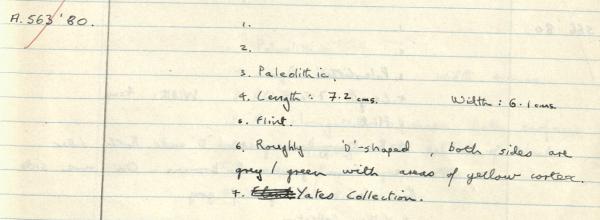 A.563'80.
1.
2.
3. Paleolithic.
4. Length : 7.2 cms. Width : 6.1 cms.
5. Flint.
6. Roughly 'D'-shaped, both sides are
grey / green with areas of yellow cortex.
7. Yates Collection.